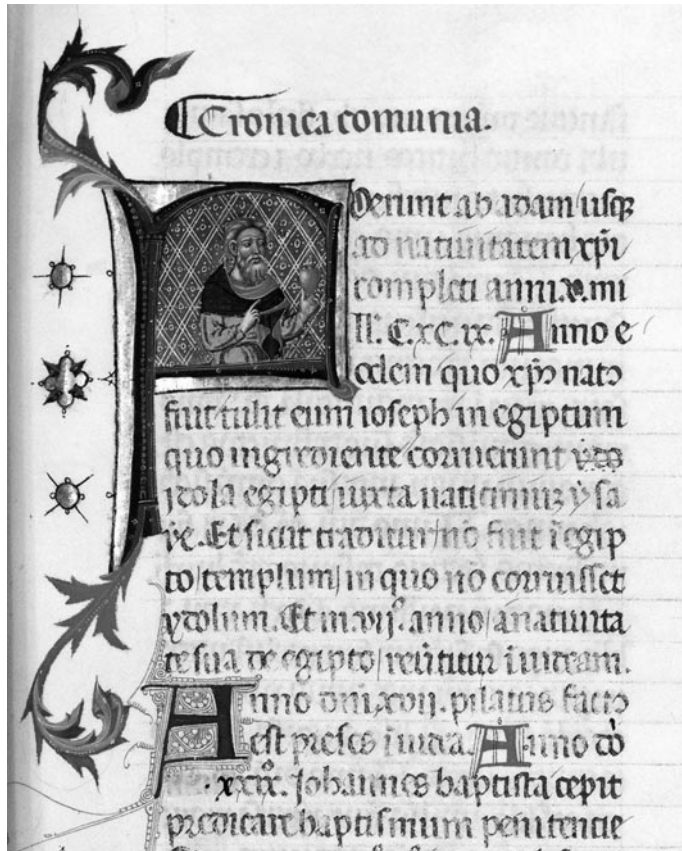 Cronica comunia.
Fuerunt ab adam usq
ad natiuitatem xpi
completi anni .v. mi
ll'. C.xC.ix. Anno e
odem quo xps natus
fuit tulit eum ioseph in egiptum
quo ingrediente corruerunt
idola egipti iuxta uaticinium ysa
ye. Et sicut traditur no fuit i egip
to templum in quo no corruisset
ydolum. Et in .vij. anno a natiuita
te sua de egipto reuertitur i iudeam.
Anno dni .xvij. pilatus factus
est preses i iudea. Anno do
.xxix. Johannes baptista cepit
predicare baptismum penitentie